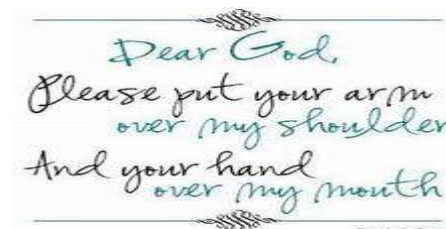 Dear God,
Please put your arm
over my shoulder
And your hand
over my mouth